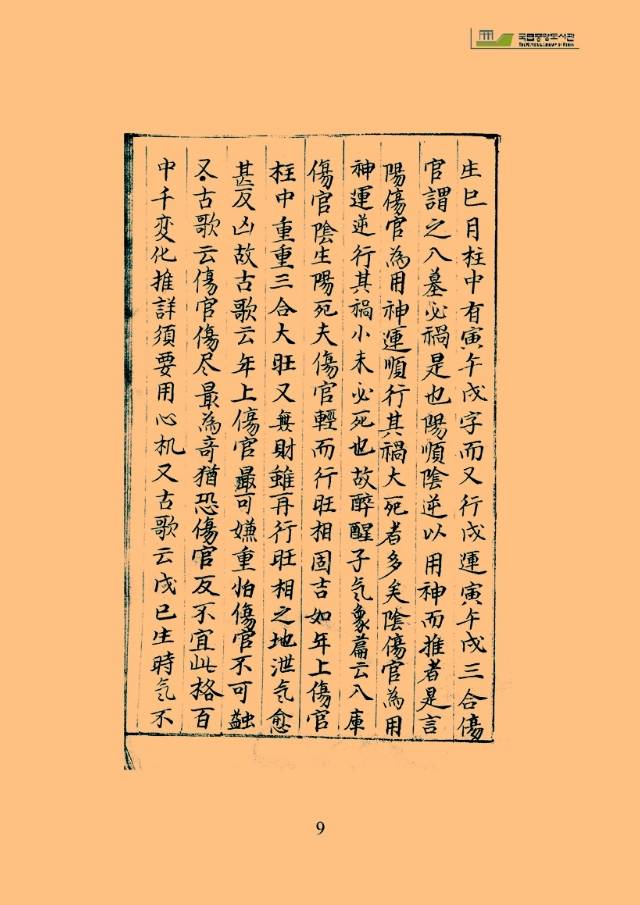 국립중앙도서관
THE NATIONAL LIBRARY OF KOREA
生巳月柱中有寅午戌字而又行戌運寅午戌三合傷
官謂之入墓必禍是也陽順陰逆以用神而推者是言
陽傷官為用神運順行其禍大死者多矣陰傷官為用
神運逆行其禍小未必死也故醉醒子气象篇云入庫
傷官陰生陽死夫傷官輕而行旺相固吉如年上傷官
柱中重重三合大旺又無財雖再行旺相之地泄气愈
甚反凶故古歌云年上傷官最可嫌重怕傷官不可蠲
又古歌云傷官傷尽最為奇猶恐傷官反不宜此格百
中千变化推詳須要用心机又古歌云戊己生時气不
9